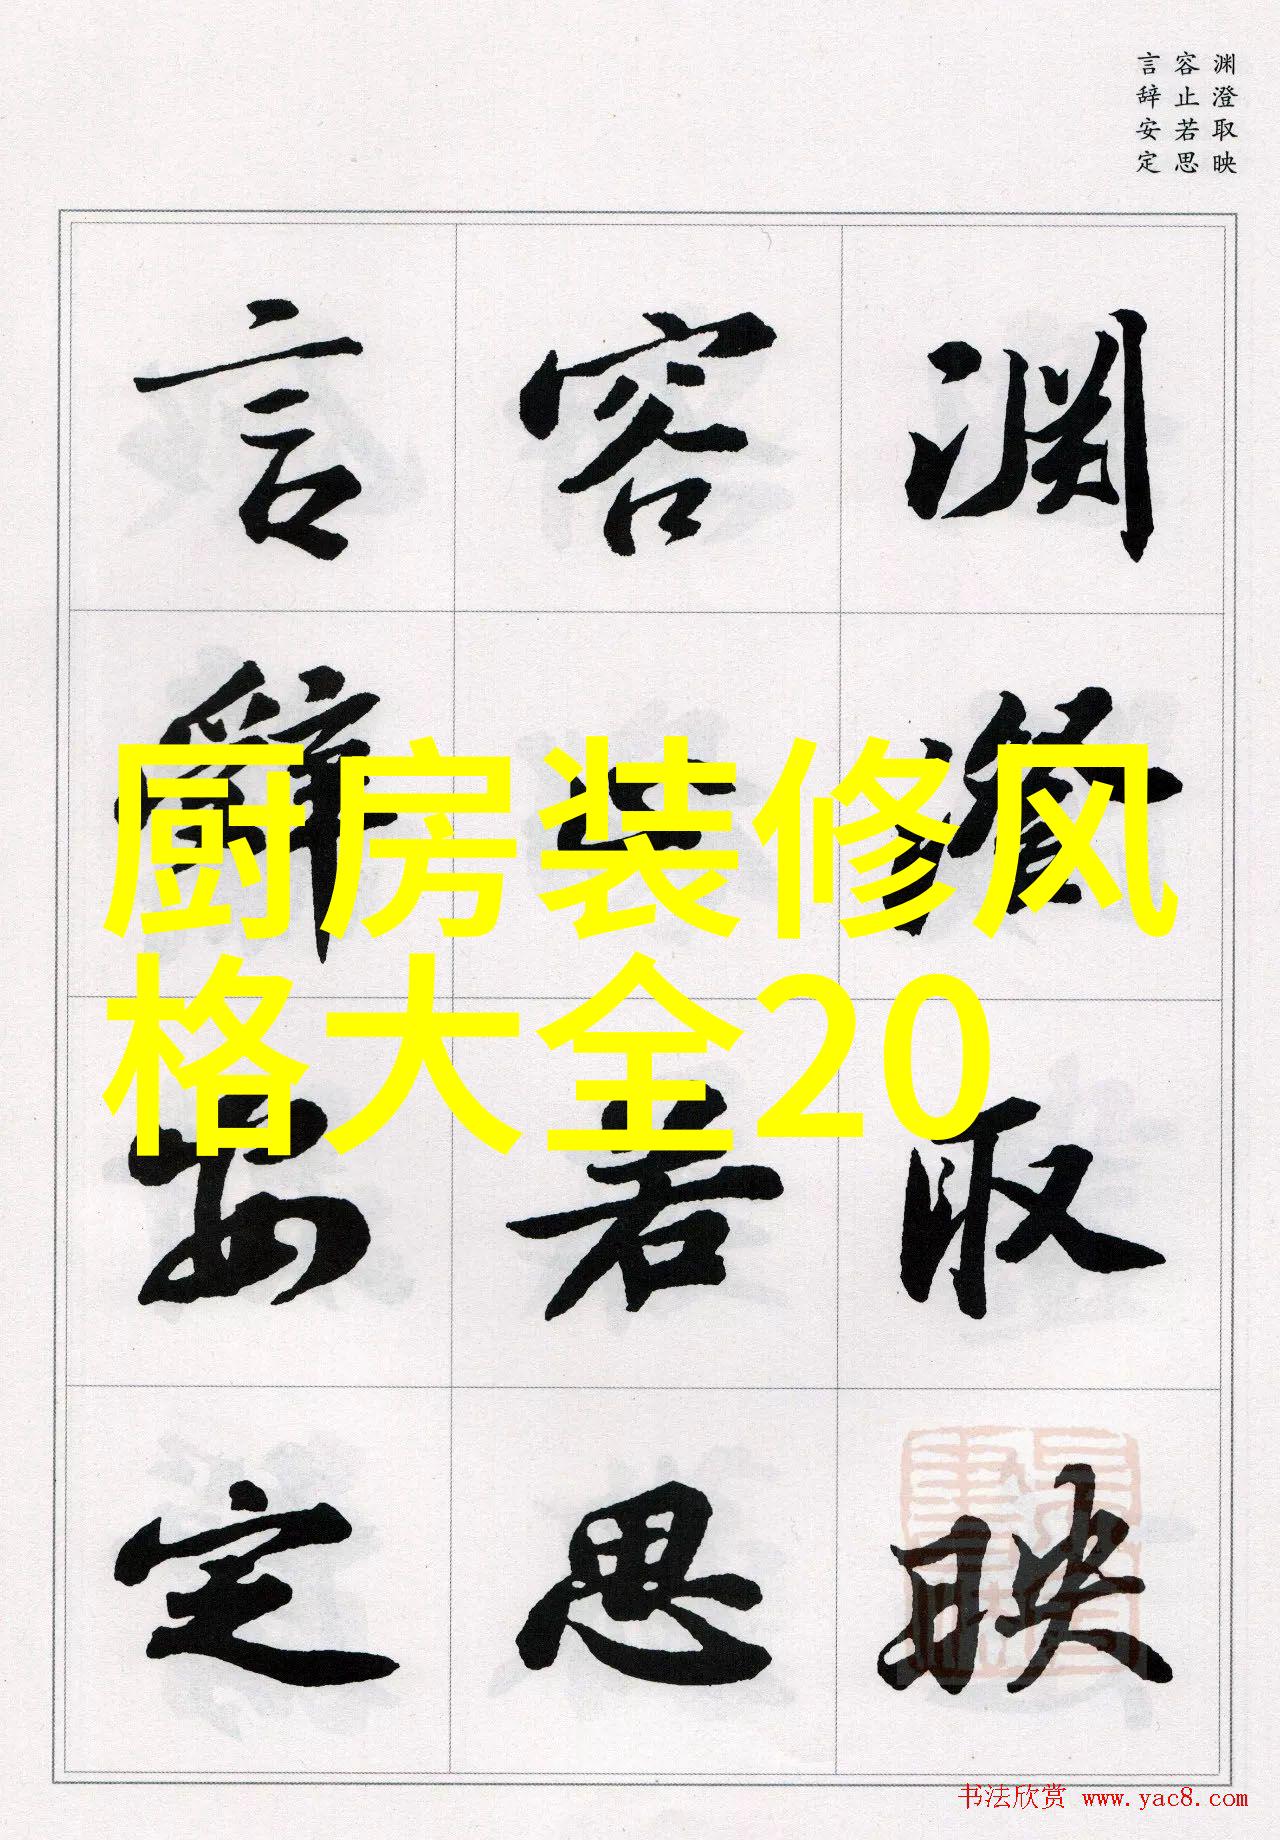 渊澄取映
容止若思
言辞安定
渊澄取映
容止若思
言辞安定
厨房装修风
格大全20
书法欣赏 www.yac8.com